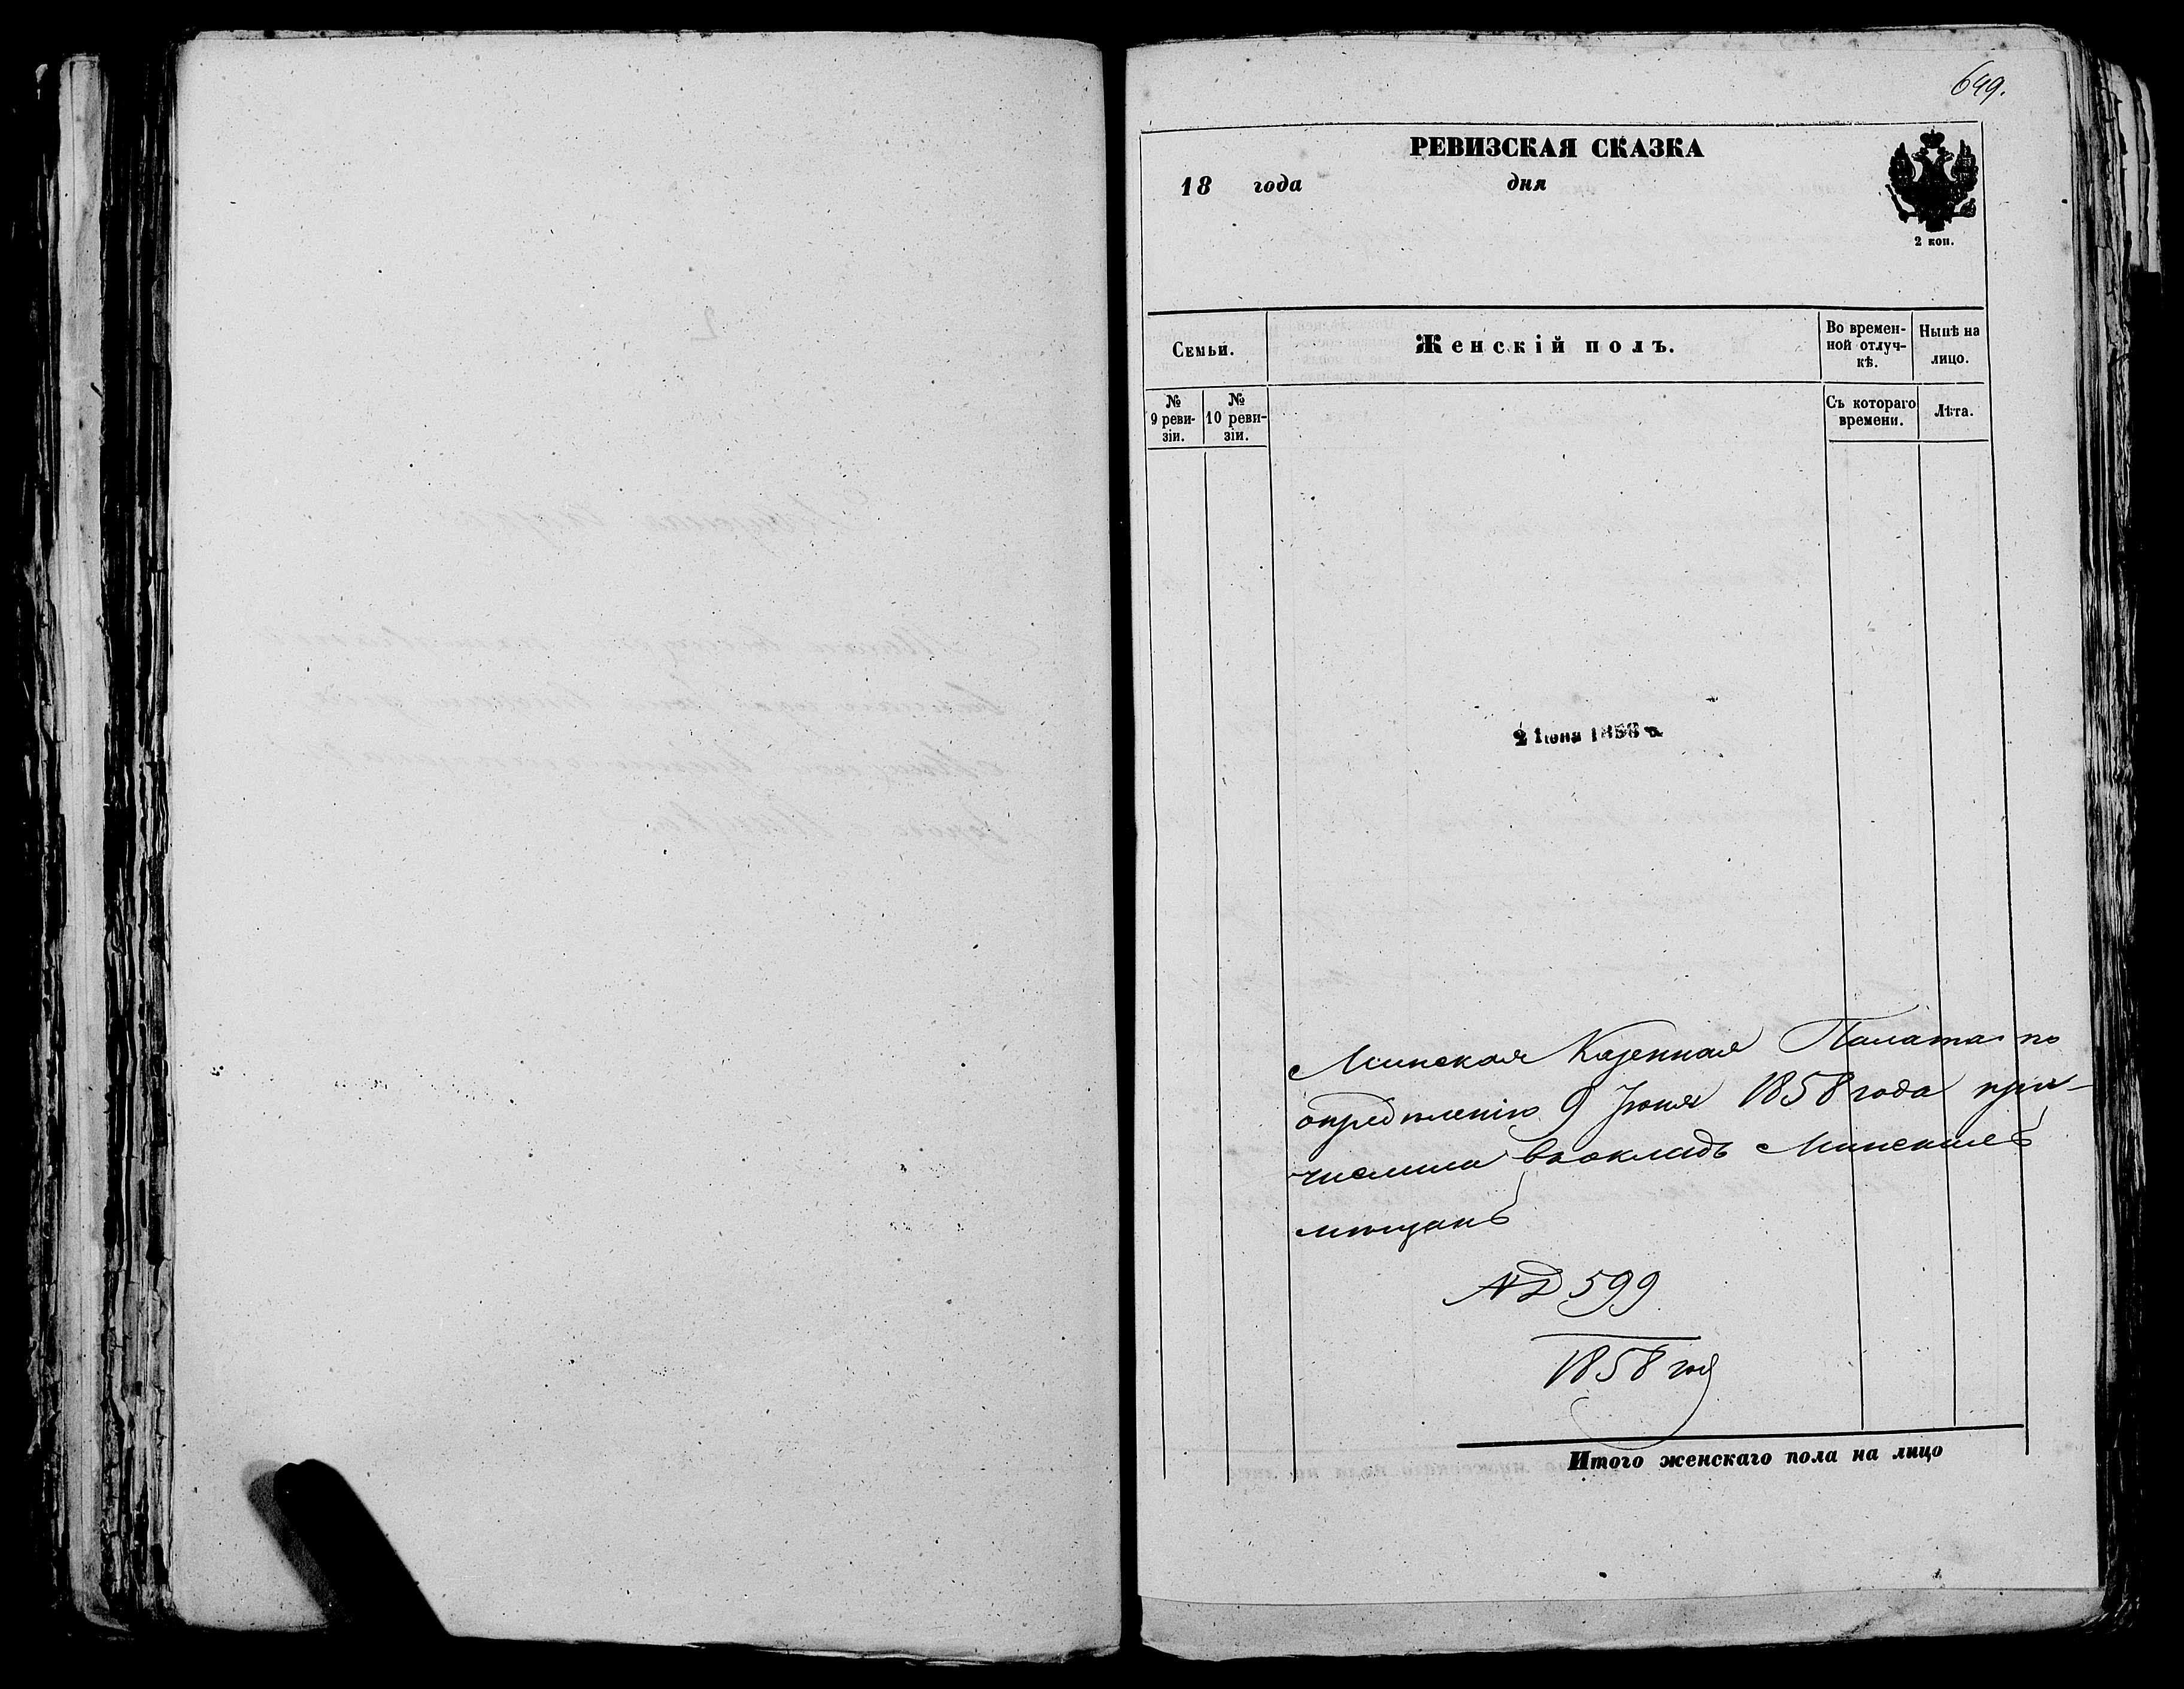 649.
РЕВИЗСКАЯ СКАЗКА
18 года дня
2 коп.
Семьи.
Женскій полъ.
Во времен-
ной отлуч-
кѣ.
Нынѣ на
лицо.
№
9 реви-
зіи.
№
10 реви-
зіи.
Съ котораго
времени.
Лѣта.
2 Іюня 1858 г.
Минская Казенная Палата по
опредѣленію 9 Іюня 1858 года при-
числила въ окладъ Минскихъ
мѣщанъ
№ 599
1858 год
Итого женскаго пола на лицо